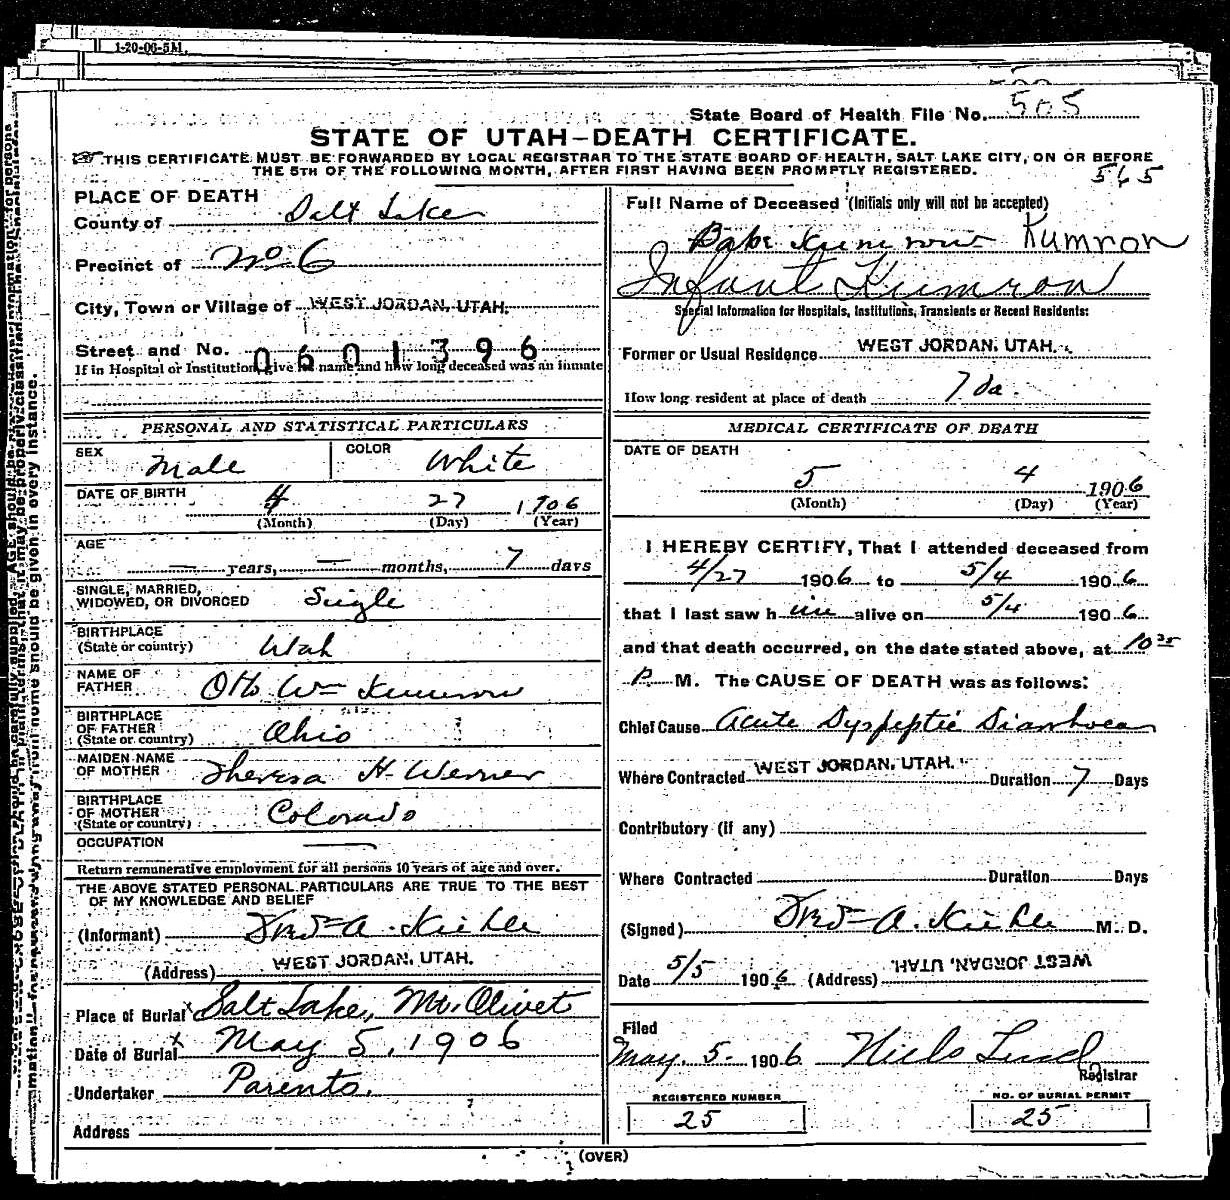 1-20-06-5M.
State Board of Health File No. 505
STATE OF UTAH—DEATH CERTIFICATE.
THIS CERTIFICATE MUST BE FORWARDED BY LOCAL REGISTRAR TO THE STATE BOARD OF HEALTH, SALT LAKE CITY, ON OR BEFORE
THE 5TH OF THE FOLLOWING MONTH, AFTER FIRST HAVING BEEN PROMPTLY REGISTERED.
565
PLACE OF DEATH
County of Salt Lake
Precinct of No 6
City, Town or Village of WEST JORDAN, UTAH.
Street and No. 0601396
If in Hospital or Institution, give its name and how long deceased was an inmate
PERSONAL AND STATISTICAL PARTICULARS
SEX Male COLOR White
DATE OF BIRTH 4 27 1906
(Month) (Day) (Year)
AGE
— years, — months, 7 days
SINGLE, MARRIED,
WIDOWED, OR DIVORCED Single
BIRTHPLACE
(State or country) Utah
NAME OF
FATHER Otto Wm Kumron
BIRTHPLACE
OF FATHER
(State or country) Ohio
MAIDEN NAME
OF MOTHER Theresa H. Werner
BIRTHPLACE
OF MOTHER
(State or country) Colorado
OCCUPATION —
Return remunerative employment for all persons 10 years of age and over.
THE ABOVE STATED PERSONAL PARTICULARS ARE TRUE TO THE BEST
OF MY KNOWLEDGE AND BELIEF
(Informant) A. Kiehle
(Address) WEST JORDAN, UTAH.
Place of Burial Salt Lake, Mt. Olivet
Date of Burial May 5, 1906
Undertaker Parents.
Address
Full Name of Deceased (Initials only will not be accepted)
Babe Kumron Kumron
Infant Kumron
Special Information for Hospitals, Institutions, Transients or Recent Residents:
Former or Usual Residence WEST JORDAN, UTAH.
How long resident at place of death 7 da.
MEDICAL CERTIFICATE OF DEATH
DATE OF DEATH
5 4 1906
(Month) (Day) (Year)
I HEREBY CERTIFY, That I attended deceased from
4/27 1906 to 5/4 1906
that I last saw him alive on 5/4 1906
and that death occurred, on the date stated above, at 10
P. M. The CAUSE OF DEATH was as follows:
Chief Cause Acute Dyspeptic Diarrhoea
Where Contracted WEST JORDAN, UTAH. Duration 7 Days
Contributory (if any)
Where Contracted Duration Days
(Signed) A. Kiehle M. D.
Date 5/5 1906 (Address) WEST JORDAN, UTAH.
Filed
May. 5. 1906 Niels Lind
Registrar
REGISTERED NUMBER
25
NO. OF BURIAL PERMIT
25
(OVER)